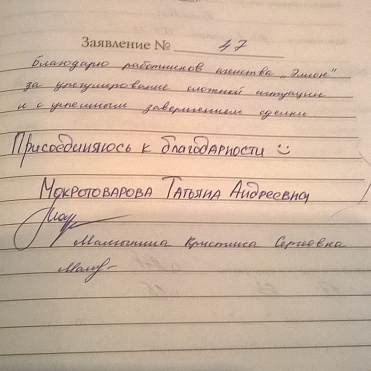 Заявление № 47
Благодарю работников агенства „Элион"
за урегулирование сложной ситуации
и с успешным завершением сделки
Присоединяюсь к благодарности ☺
Мокротоварова Татьяна Андреевна
Кристина Сергеевна